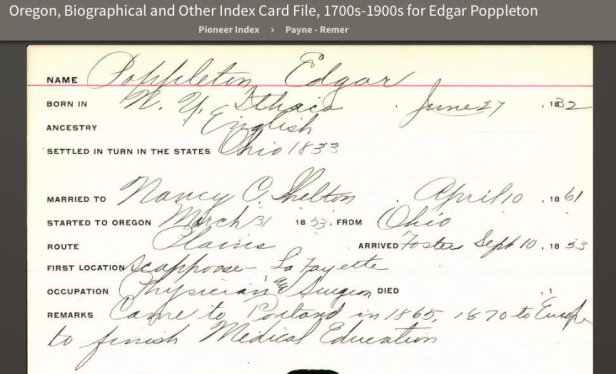 Oregon, Biographical and Other Index Card File, 1700s-1900s for Edgar Poppleton
Pioneer Index › Payne - Remer
NAME Poppleton, Edgar
BORN IN N. Y. Ithaca . June 27 . 1832
ANCESTRY English
SETTLED IN TURN IN THE STATES Ohio 1833
MARRIED TO Nancy C. Shelton . April 10 . 1861
STARTED TO OREGON March 31 1853. FROM Ohio
ROUTE Plains ARRIVED Foster Sept 10 . 1853
FIRST LOCATION Scappoose - La Fayette
OCCUPATION Physician & Surgeon DIED
REMARKS Came to Portland in 1865, 1870 to Europe
to finish Medical Education